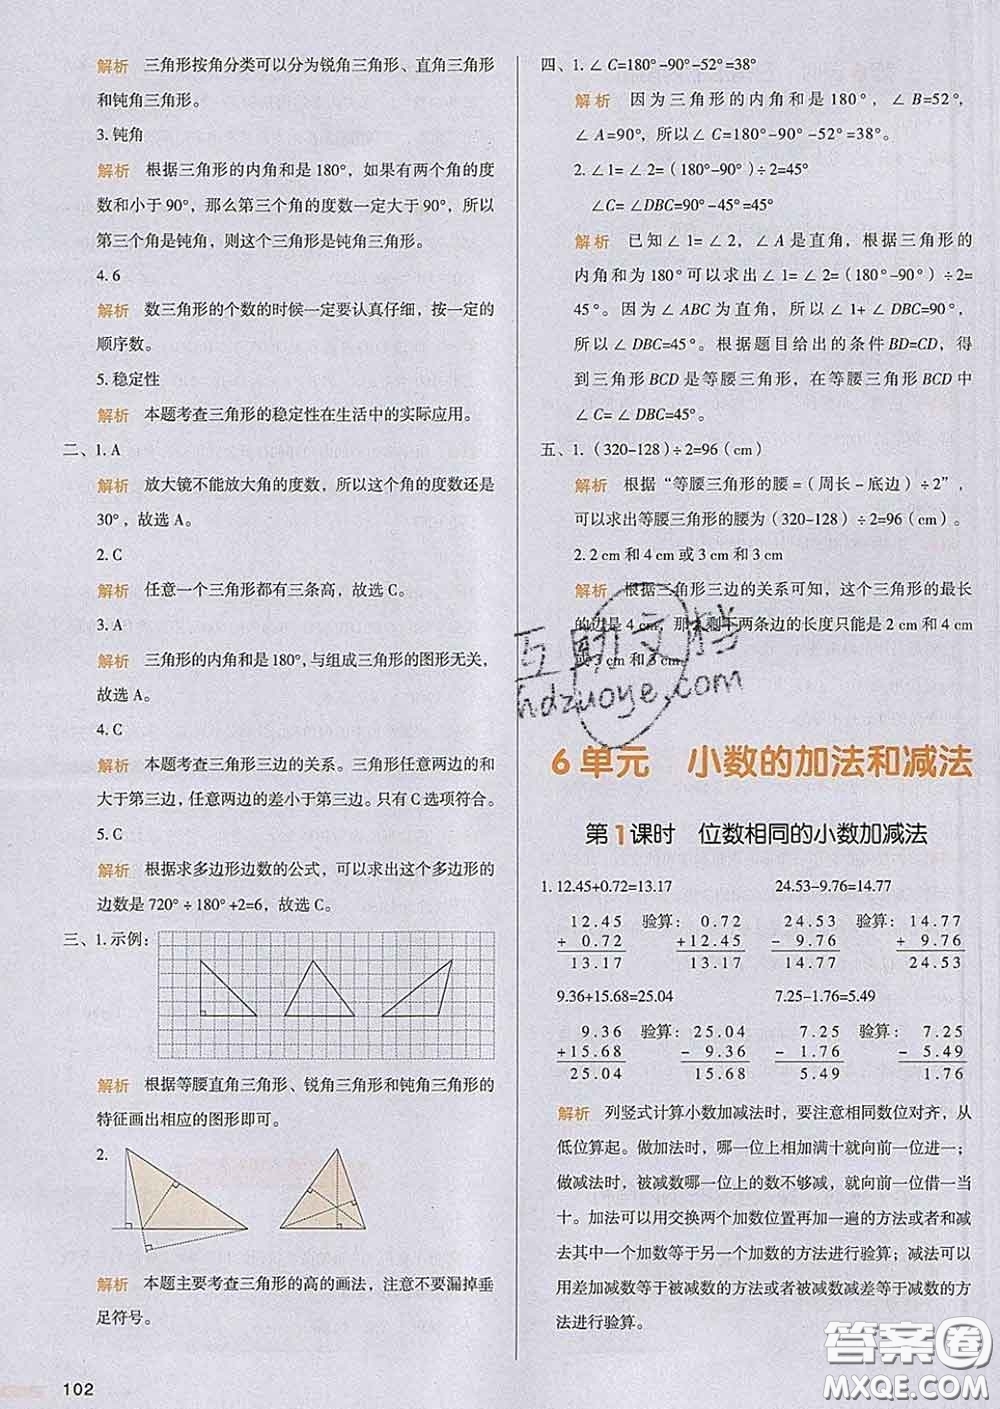 解析 三角形按角分类可以分为锐角三角形、直角三角形
和钝角三角形。
3. 钝角
解析 根据三角形的内角和是180°，如果有两个角的度
数和小于90°，那么第三个角的度数一定大于90°，所以
第三个角是钝角，则这个三角形是钝角三角形。
4. 6
解析 数三角形的个数的时候一定要认真仔细，按一定的
顺序数。
5. 稳定性
解析 本题考查三角形的稳定性在生活中的实际应用。
二、1. A
解析 放大镜不能放大角的度数，所以这个角的度数还是
30°，故选A。
2. C
解析 任意一个三角形都有三条高，故选C。
3. A
解析 三角形的内角和是180°，与组成三角形的图形无关，
故选A。
4. C
解析 本题考查三角形三边的关系。三角形任意两边的和
大于第三边，任意两边的差小于第三边。只有C选项符合。
5. C
解析 根据求多边形边数的公式，可以求出这个多边形的
边数是720°÷180°+2=6，故选C。
三、1. 示例：
解析 根据等腰直角三角形、锐角三角形和钝角三角形的
特征画出相应的图形即可。
2.
解析 本题主要考查三角形的高的画法，注意不要漏掉垂
足符号。
102
四、1. ∠C=180°-90°-52°=38°
解析 因为三角形的内角和是180°，∠B=52°，
∠A=90°，所以∠C=180°-90°-52°=38°。
2. ∠1=∠2=（180°-90°）÷2=45°
∠C=∠DBC=90°-45°=45°
解析 已知∠1=∠2，∠A是直角，根据三角形的
内角和为180°可以求出∠1=∠2=（180°-90°）÷2=
45°。因为∠ABC为直角，所以∠1+∠DBC=90°，
所以∠DBC=45°。根据题目给出的条件BD=CD，得
到三角形BCD是等腰三角形，在等腰三角形BCD中
∠C=∠DBC=45°。
五、1.（320-128）÷2=96（cm）
解析 根据“等腰三角形的腰=（周长-底边）÷2”，
可以求出等腰三角形的腰为（320-128）÷2=96（cm）。
2. 2 cm和4 cm或3 cm和3 cm
解析 根据三角形三边的关系可知，这个三角形的最长
的边是4 cm，那么剩下两条边的长度只能是2 cm和4 cm
或3 cm和3 cm。
互助文档
hdzuoye.com
6单元 小数的加法和减法
第1课时 位数相同的小数加减法
1. 12.45+0.72=13.17 24.53-9.76=14.77
12.45 验算：0.72 24.53 验算：14.77
+ 0.72 +12.45 - 9.76 + 9.76
13.17 13.17 14.77 24.53
9.36+15.68=25.04 7.25-1.76=5.49
9.36 验算：25.04 7.25 验算：7.25
+15.68 - 9.36 - 1.76 - 5.49
25.04 15.68 5.49 1.76
解析 列竖式计算小数加减法时，要注意相同数位对齐，从
低位算起。做加法时，哪一位上相加满十就向前一位进一；
做减法时，被减数哪一位上的数不够减，就向前一位借一当
十。加法可以用交换两个加数位置再加一遍的方法或者和减
去其中一个加数等于另一个加数的方法进行验算；减法可以
用差加减数等于被减数的方法或者被减数减差等于减数的方
法进行验算。
答案圈
MXQE.COM